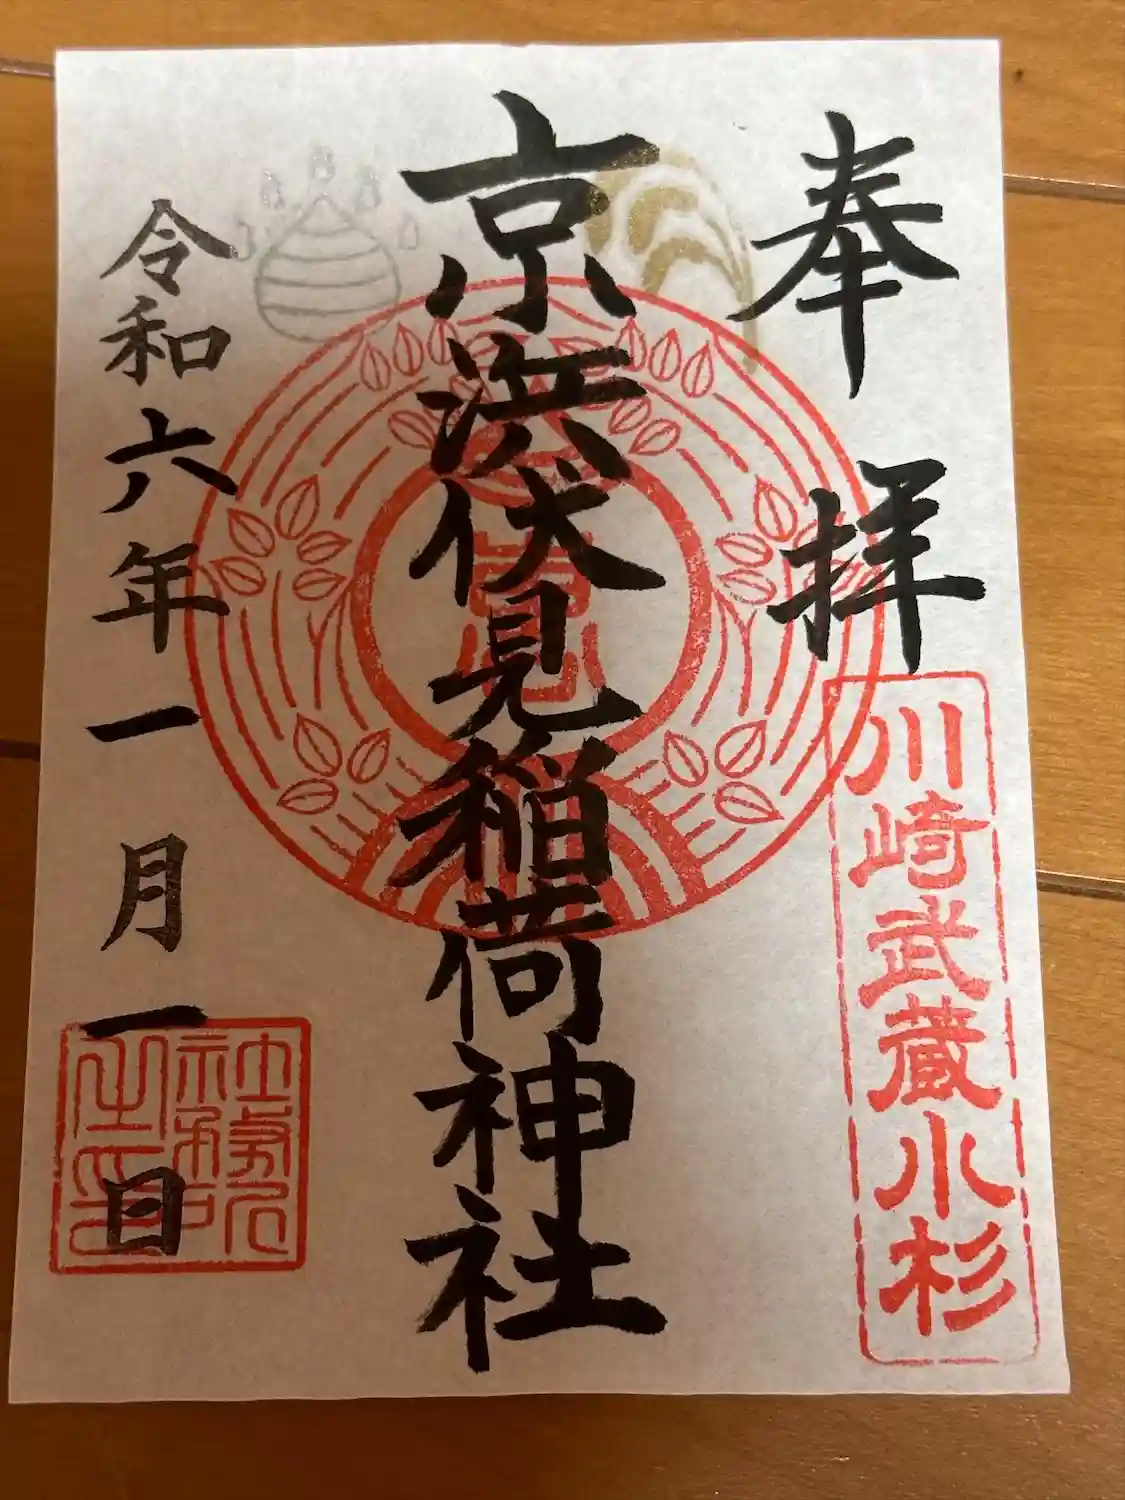 奉拝
川崎武蔵小杉
京浜伏見稲荷神社
令和六年一月一日
社務所之印